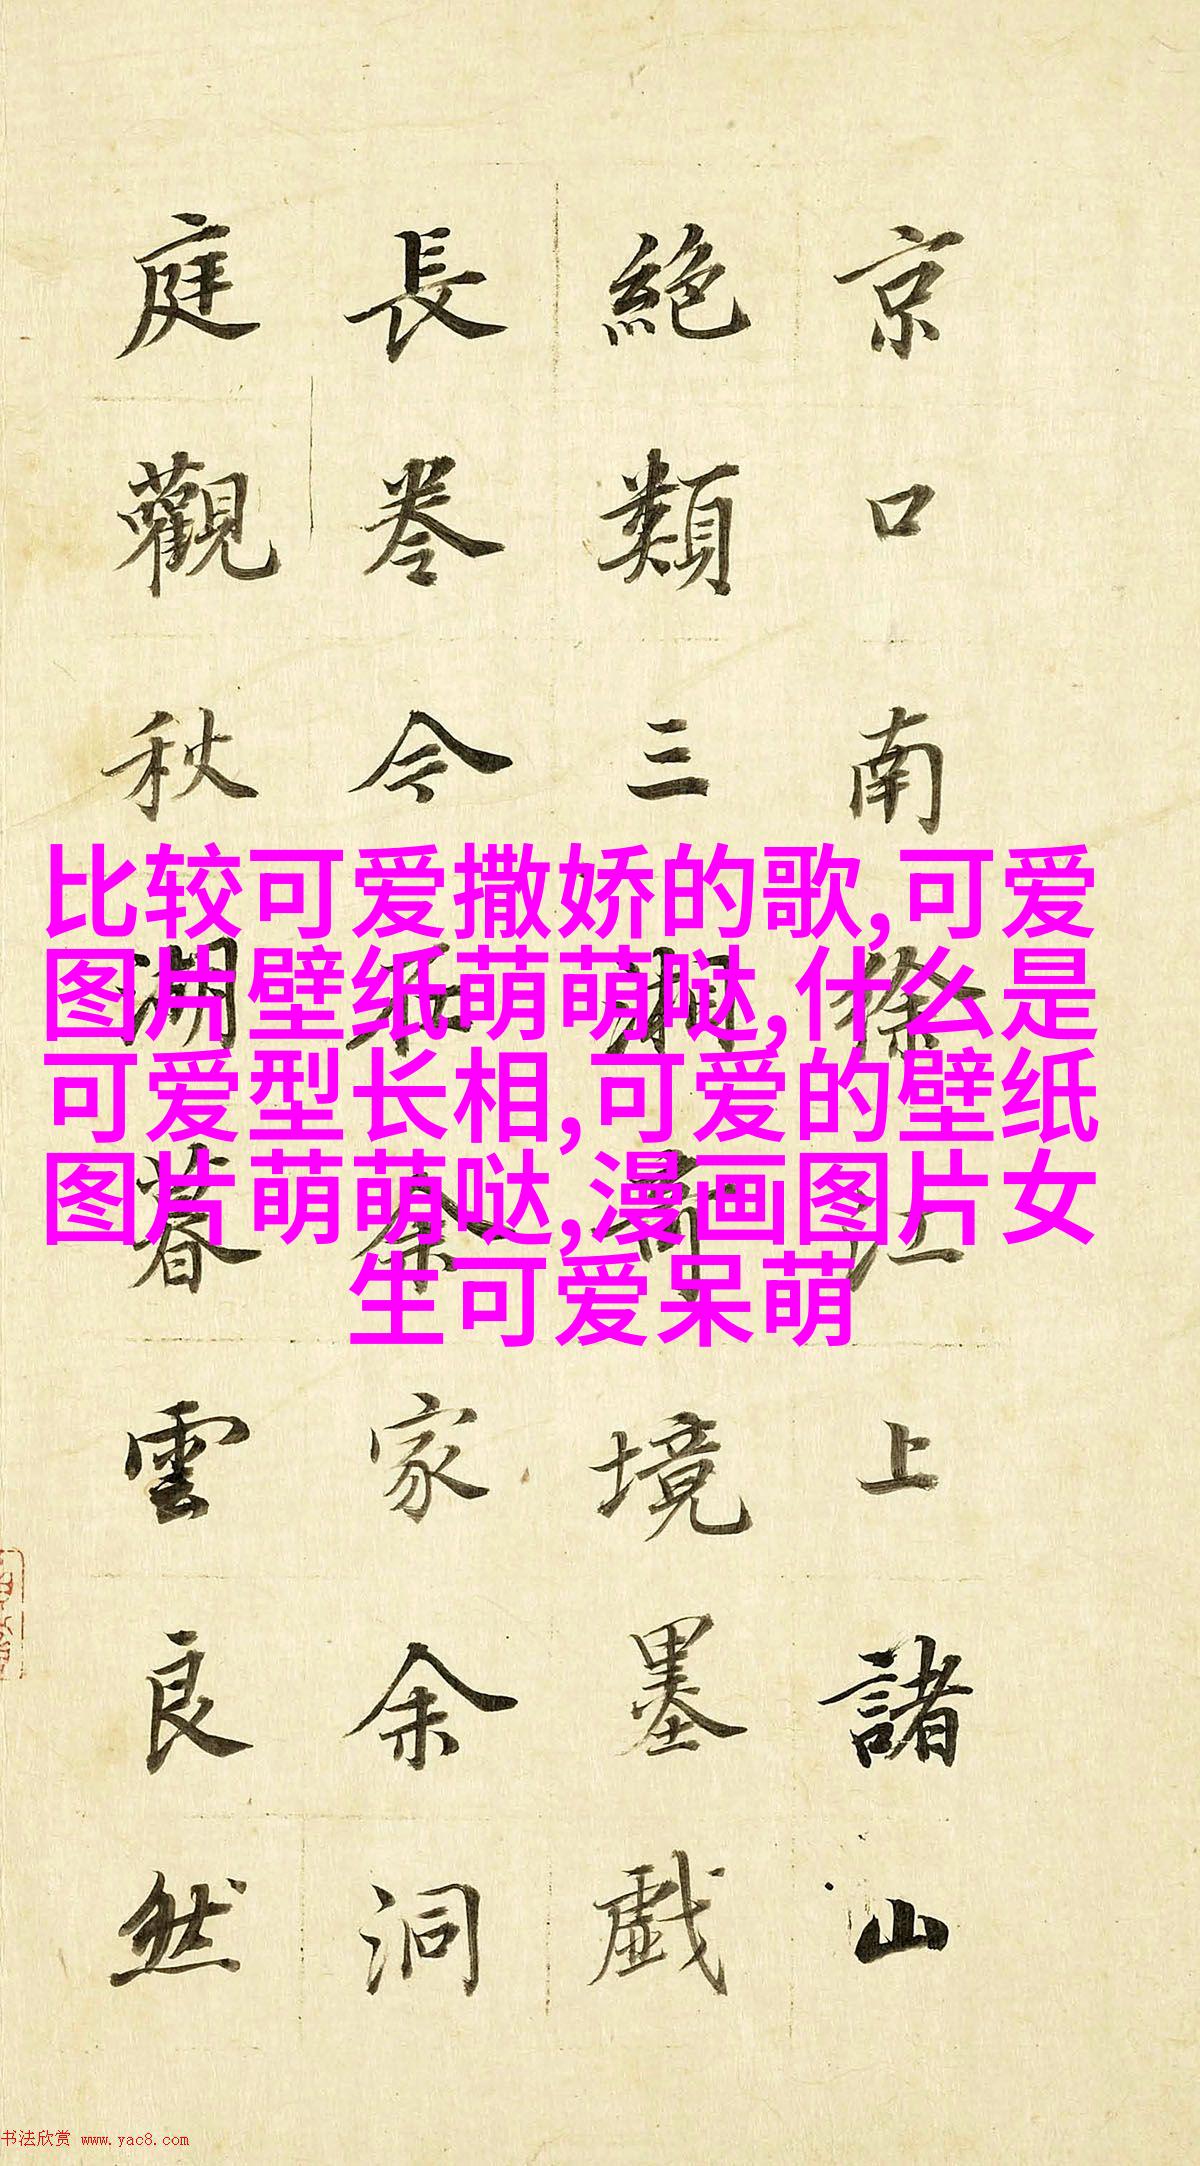 京口南徐江上諸山
絶類三湘奇境墨戲
長卷今在余家余洞
庭觀秋湖暮雲良然
比较可爱撒娇的歌,可爱
图片壁纸萌萌哒,什么是
可爱型长相,可爱的壁纸
图片萌萌哒,漫画图片女
生可爱呆萌
书法欣赏 www.yac8.com